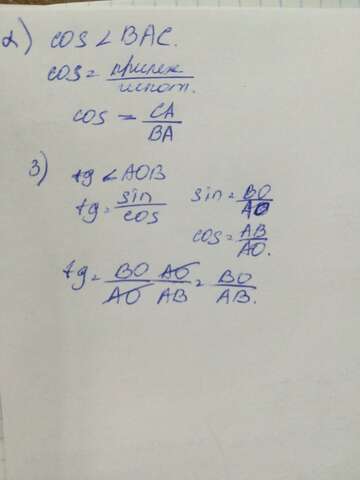 2) cos ∠BAC.
cos = прилеж / гипот.
cos = CA / BA
3) tg ∠AOB
tg = sin / cos
sin = BO / AO
cos = AB / AO.
tg = BO / AO AO / AB = BO / AB.